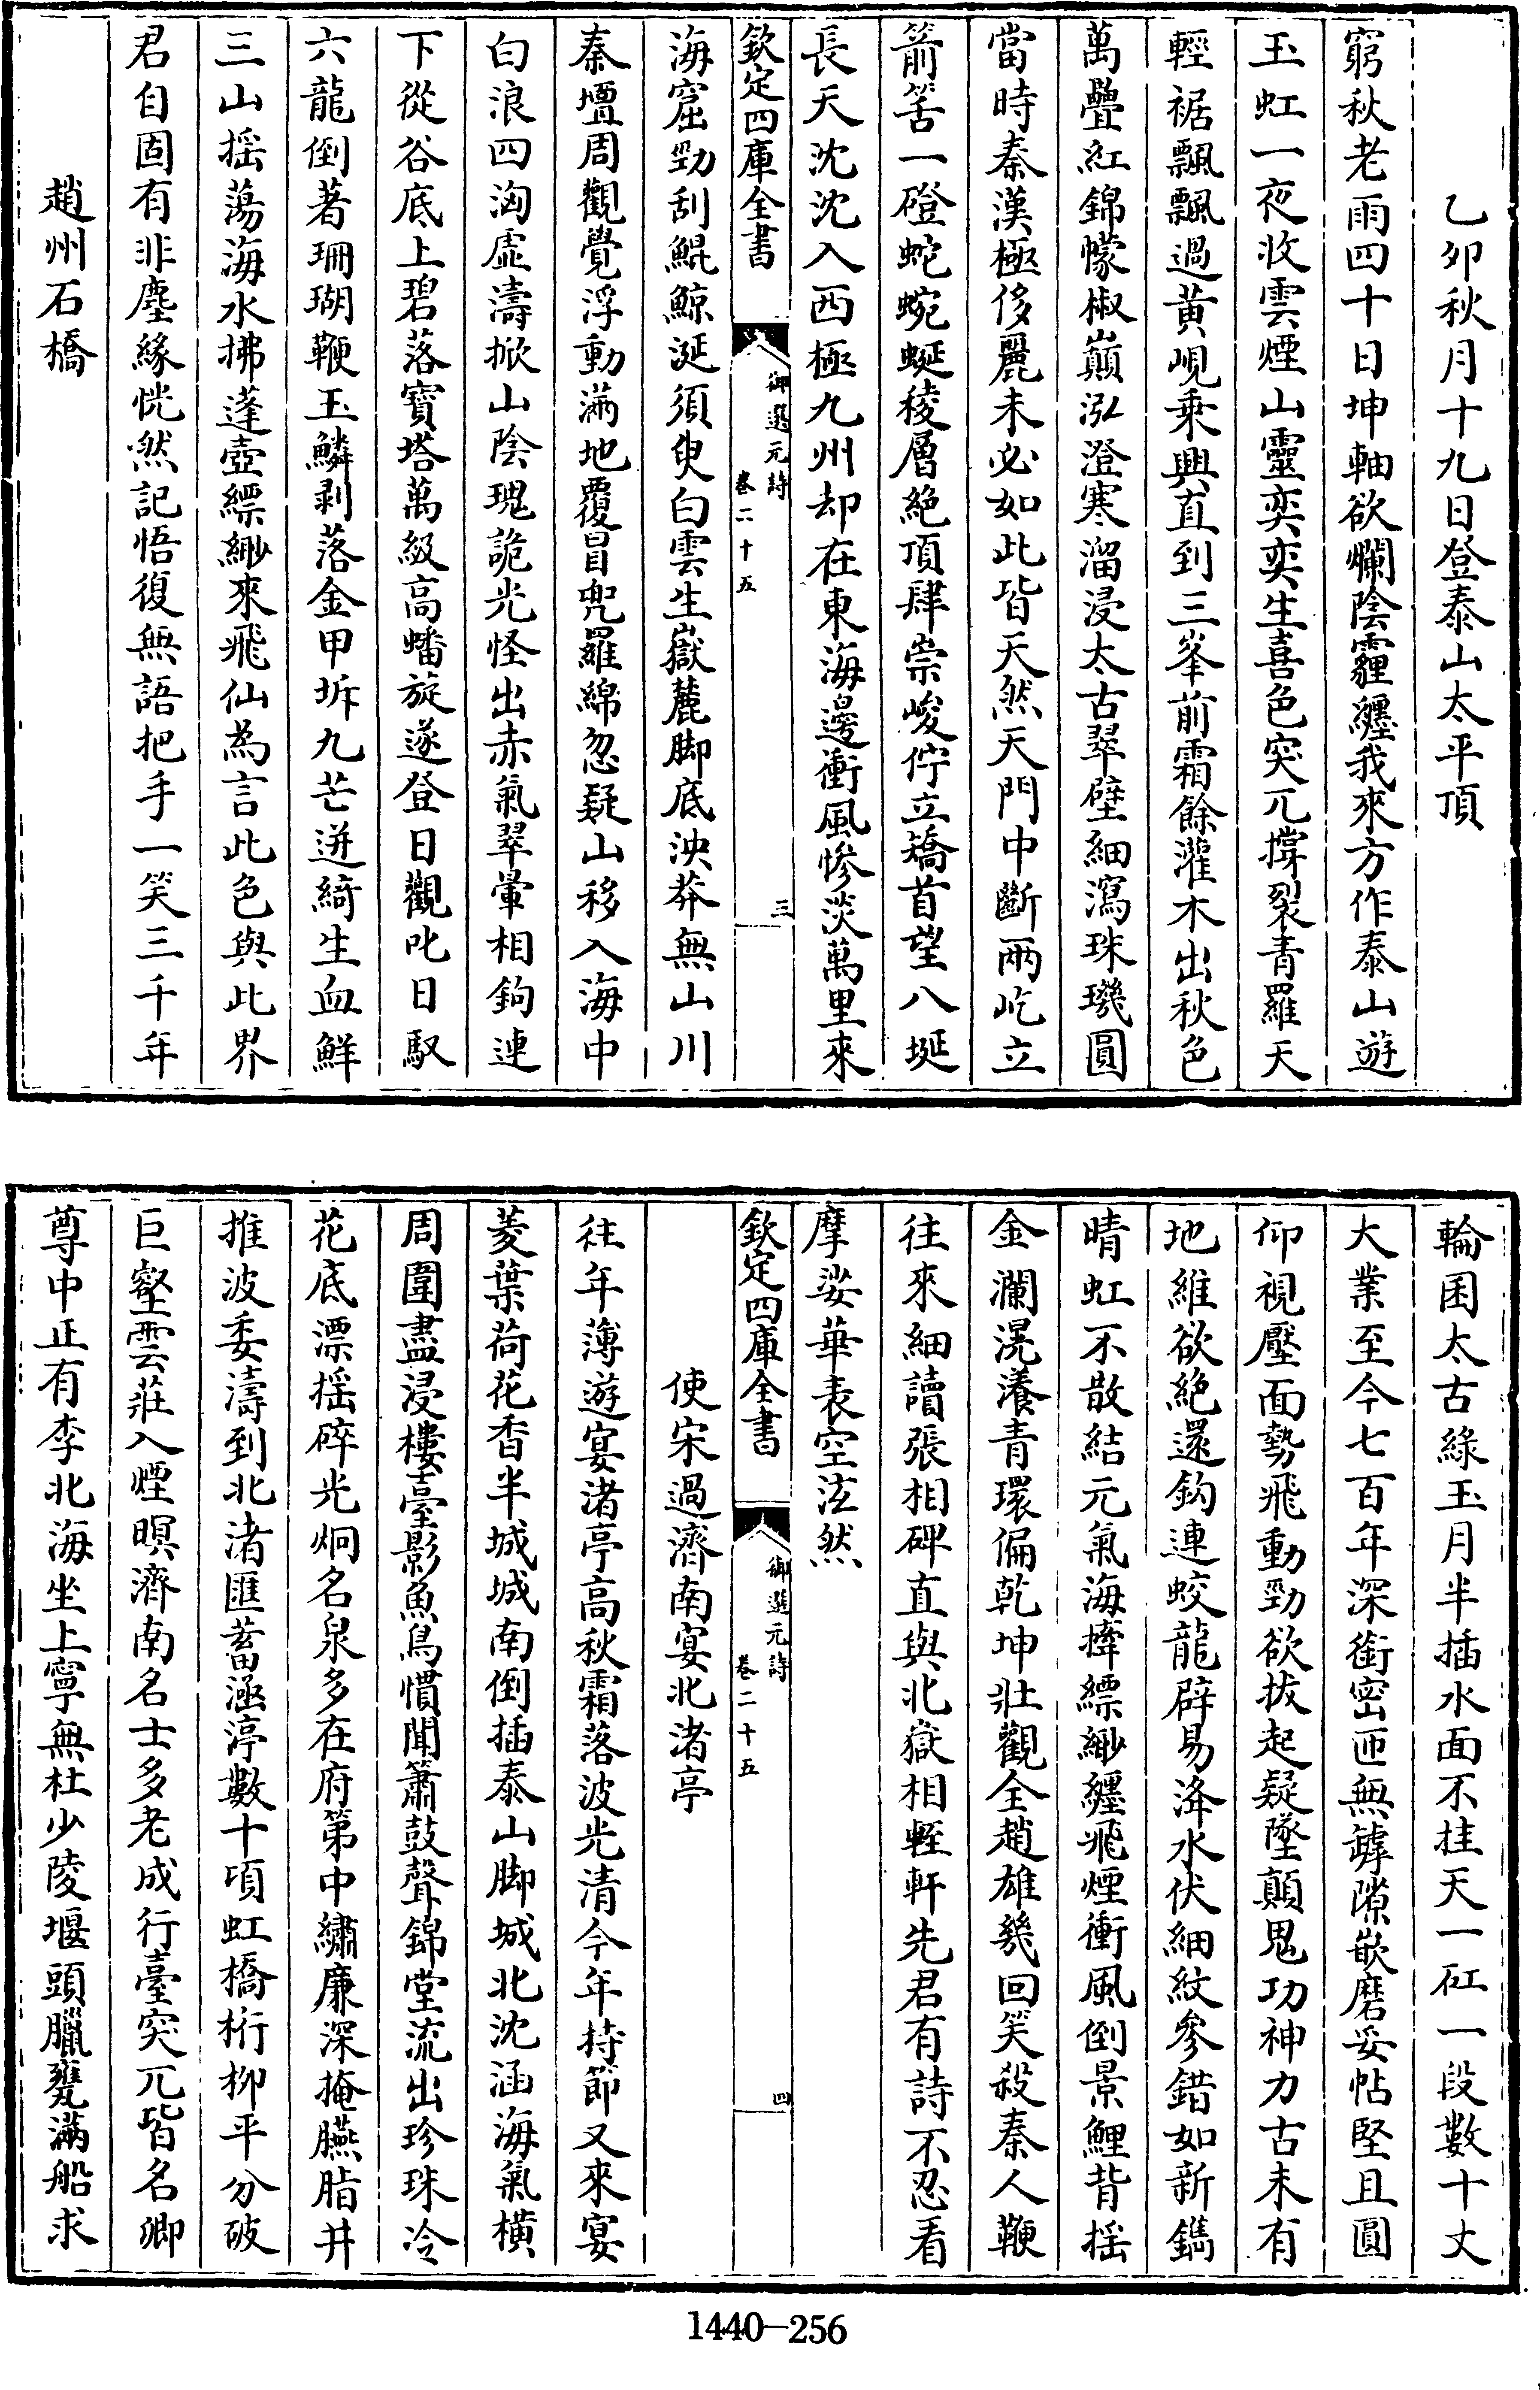 乙夘秋月十九日登泰山太平頂
窮秋老雨四十日坤軸欲爛陰霾纏我來方作泰山遊
玉虹一夜收雲煙山靈奕奕生喜色突兀撐裂青羅天
輕裾飄飄過黄峴乗興直到三峯前霜餘灌木出秋色
萬疊紅錦幪椒巔泓澄寒溜浸太古翠壁細瀉珠璣圓
當時秦漢極侈麗未必如此皆天然天門中斷兩屹立
箭筈一磴蛇蜿蜒稜層絶頂肆崇峻佇立矯首望八埏
長天沈沈入西極九州却在東海邊衝風慘淡萬里來
欽定四庫全書
御選元詩
卷二十五
三
海窟勁刮鯤鯨涎須臾白雲生嶽麓脚底泱莽無山川
秦壇周觀覺浮動滿地覆冒兜羅綿忽疑山移入海中
白浪四洶虛濤掀山陰瑰詭光怪出赤氣翠暈相鉤連
下從谷底上碧落寶塔萬級高蟠旋遂登日觀叱日馭
六龍倒著珊瑚鞭玉鱗剥落金甲坼九芒迸綺生血鮮
三山揺蕩海水拂蓬壺縹緲來飛仙為言此色與此界
君自固有非塵緣恍然記悟復無語把手一笑三千年
趙州石橋
輪囷太古綠玉月半插水面不挂天一矼一段數十丈
大業至今七百年深銜密匝無罅隙嵌磨妥帖堅且圓
仰視壓面勢飛動勁欲拔起疑墜顛鬼功神力古未有
地維欲絶還鈎連蛟龍辟易洚水伏細紋參錯如新鐫
晴虹不散結元氣海擡縹緲纏飛煙衝風倒景鯉背揺
金瀾滉瀁青環偏乾坤壯觀全趙雄幾回笑殺秦人鞭
往來細讀張相碑直與北嶽相輊軒先君有詩不忍看
摩娑華表空泫然
欽定四庫全書
御選元詩
卷二十五
四
使宋過濟南宴北渚亭
往年薄遊宴渚亭高秋霜落波光清今年持節又來宴
菱葉荷花香半城城南倒插泰山脚城北沈涵海氣橫
周圍盡浸樓臺影魚鳥慣聞簫鼓聲錦堂流出珍珠冷
花底漂揺碎光炯名泉多在府第中繡亷深掩臙脂井
推波委濤到北渚匯蓄滀渟數十頃虹橋桁柳平分破
巨壑雲莊入煙暝濟南名士多老成行臺突兀皆名卿
尊中正有李北海坐上寧無杜少陵堰頭臘甕滿船求
1440-256